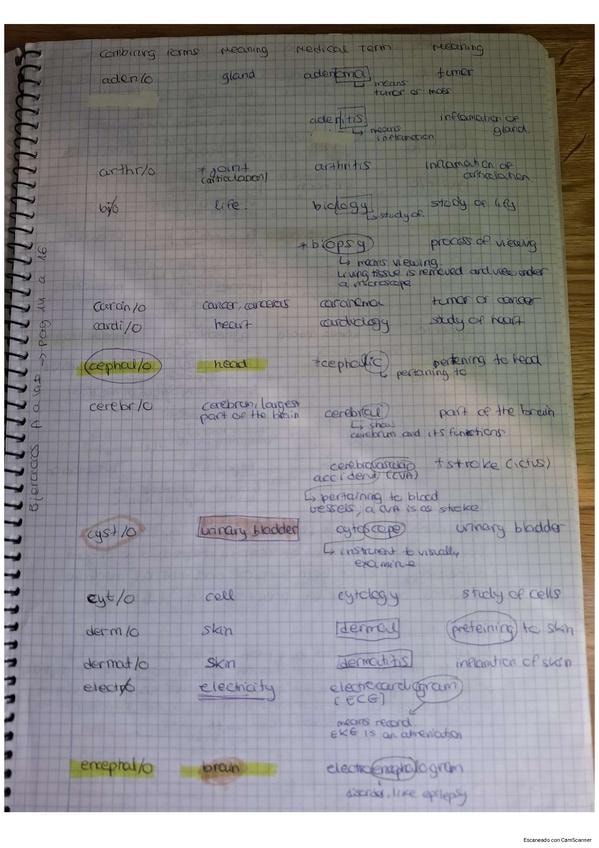 combining forms meaning medical term meaning
aden/o gland adenoma tumor
↳ means
tumor or mass
adenitis inflamation of
↳ means gland
inflamation
arthr/o + joint arthritis inflamation of
(articulacion) articulation
bi/o life. biology study of life
↳ study of
+ biopsy process of viewing
↳ means viewing.
living tissue is removed and view under
a microscope
carcin/o cancer, carcinoma tumor or cancer
cardi/o heart cardiology study of heart
cephal/o head + cephalic pertening to head
↳ pertaining to
cerebr/o cerebrun, largest cerebral part of the brain
part of the brain ↳ show
cerebrun and its functions
cerebrovascular + stroke (ictus)
accident (CVA)
↳ pertaining to blood
vessels, a CVA is as stroke
cyst/o urinary bladder cytoscope urinary bladder
↳ instrument to visually
examine
cyt/o cell cytology study of cells
derm/o skin dermal preteining to skin
dermat/o skin dermatitis inflamtion of skin
electr/o electricity electrocardiogram
(ECG)
means record
EKG is an
encephal/o brain electroencephalogram
disorder, like epilepsy
Ejercicios A a la D → pag 14 a 16
Escaneado con CamScanner